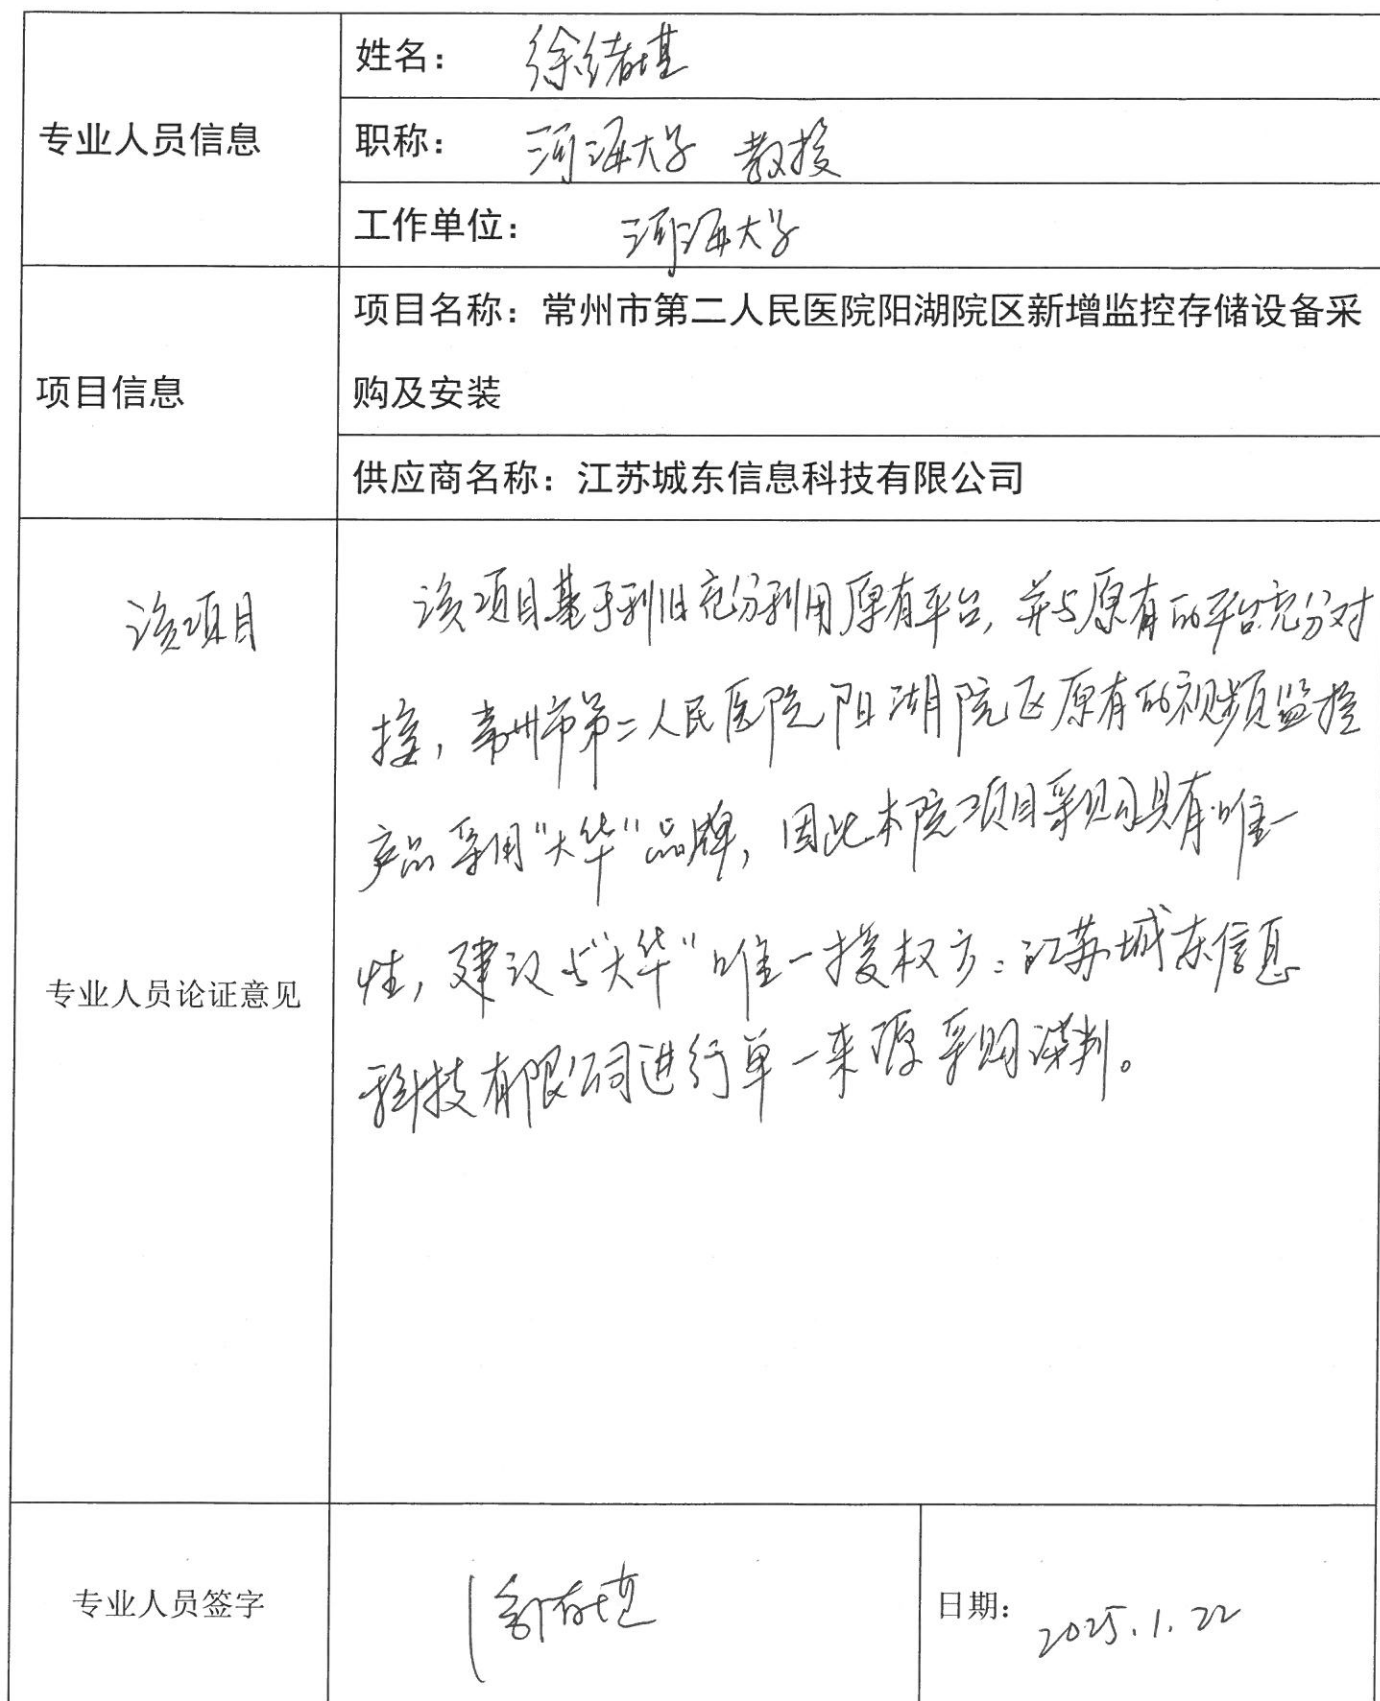 专业人员信息
姓名: 徐绪堪
职称: 河海大学 教授
工作单位: 河海大学
项目信息
项目名称:常州市第二人民医院阳湖院区新增监控存储设备采
购及安装
供应商名称:江苏城东信息科技有限公司
该项目
专业人员论证意见
该项目基于利旧充分利用原有平台,并与原有的平台充分对
接,常州市第二人民医院阳湖院区原有的视频监控
产品采用“大华”品牌,因此本院项目采购具有唯一
性,建议与“大华”唯一授权方:江苏城东信息
科技有限公司进行单一来源采购谈判。
专业人员签字
徐绪堪
日期: 2025.1.22